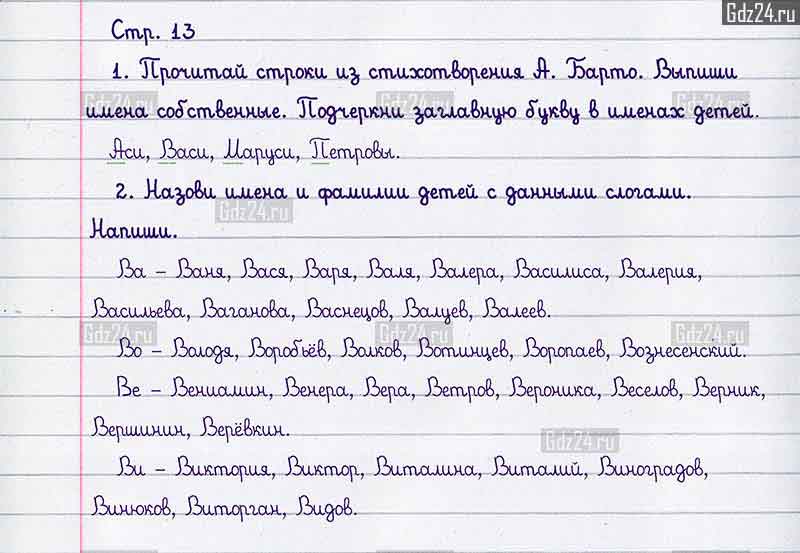 Gdz24.ru
Стр. 13
1. Прочитай строки из стихотворения А. Барто. Выпиши
Gdz24.ru Gdz24.ru Gdz24.ru
имена собственные. Подчеркни заглавную букву в именах детей.
Аси, Васи, Маруси, Петровы.
2. Назови имена и фамилии детей с данными слогами.
Gdz24.ru
Напиши.
Ва – Ваня, Вася, Варя, Валя, Валера, Василиса, Валерия,
Васильева, Ваганова, Васнецов, Валуев, Валеев.
Gdz24.ru Gdz24.ru Gdz24.ru
Во – Володя, Воробьёв, Волков, Вотинцев, Воропаев, Вознесенский.
Ве – Вениамин, Венера, Вера, Ветров, Вероника, Веселов, Верник,
Вершинин, Верёвкин.
Gdz24.ru
Ви – Виктория, Виктор, Виталина, Виталий, Виноградов,
Винюков, Виторган, Видов.